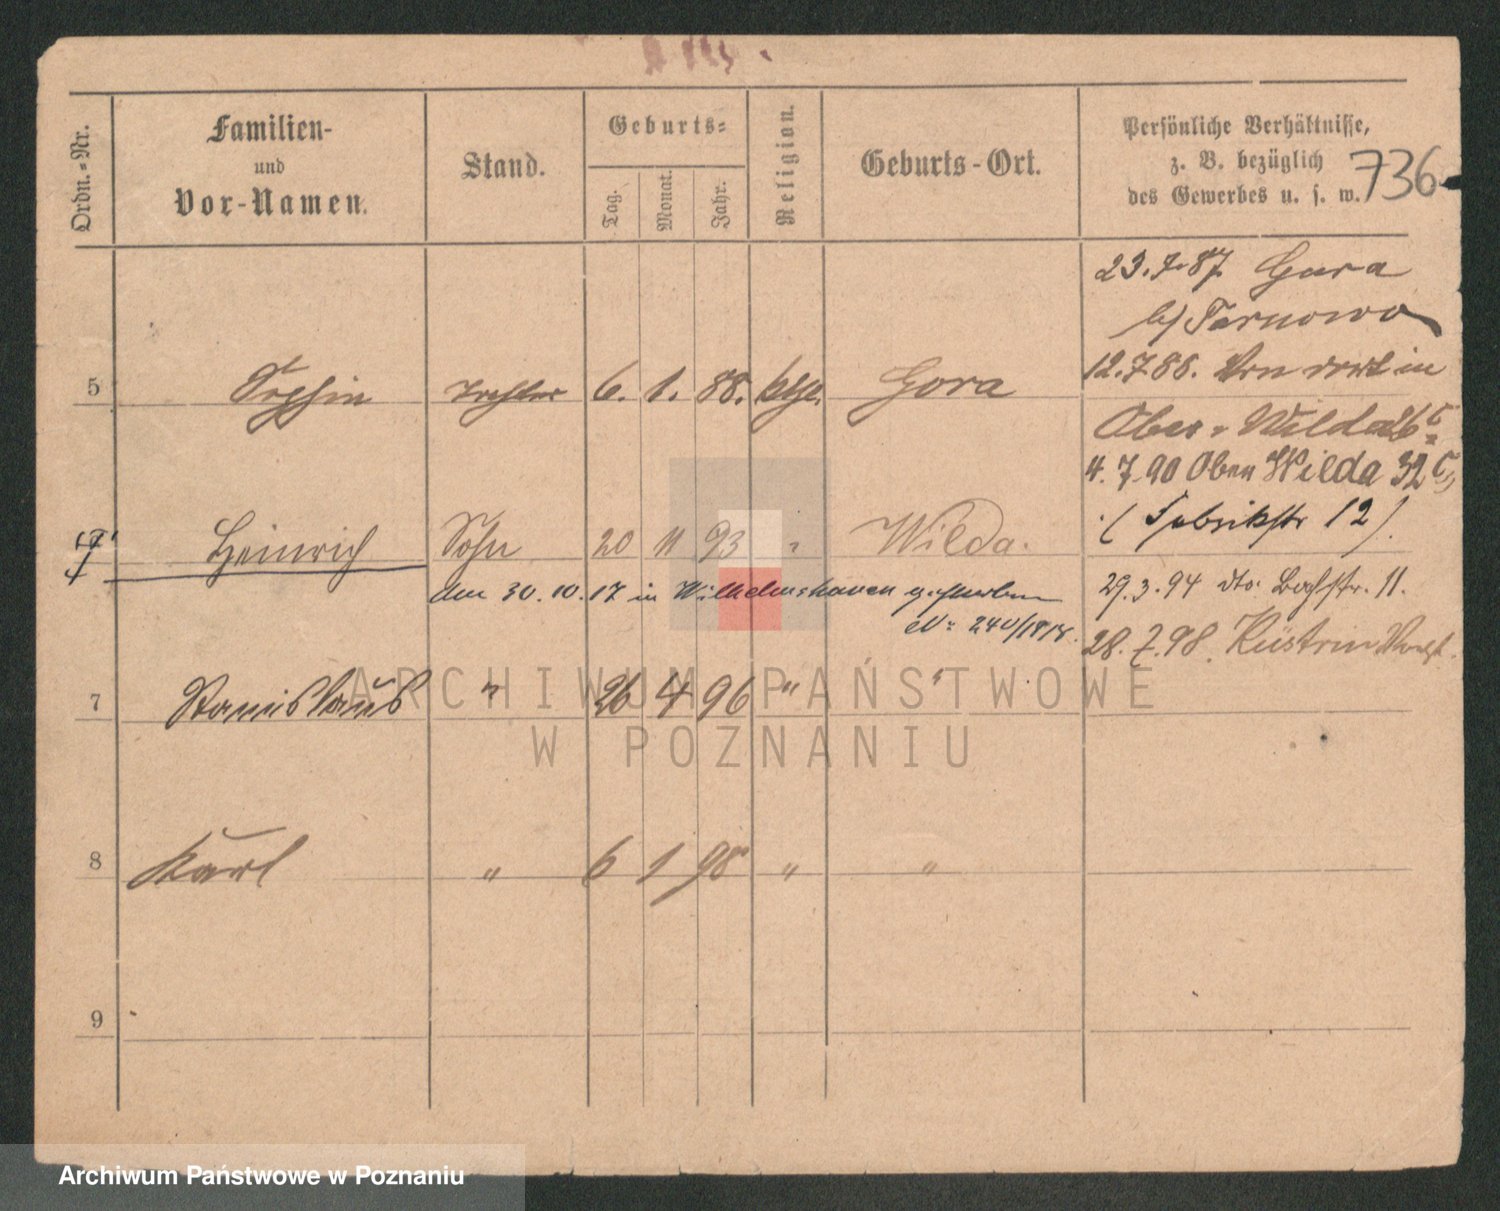 736
Ordn.-Nr.
Familien-
und
Vor-Namen.
Stand.
Geburts-
Tag.
Monat.
Jahr.
Religion.
Geburts-Ort.
Persönliche Verhältnisse,
z. B. bezüglich
des Gewerbes u. s. w.
23.7.87 Gura
b/ Tarnowo
5 Tochter 6. 1. 88. kth. Gora
12.7.88. Von dort in
Ober-Wilda
4.7.90 Ober Wilda 32
Heinrich Sohn 20 11 93 " Wilda.
(Fabrikstr 12).
Am 30.10.17 in Wilhelmshaven gestorben
N: 240/1918.
29.3.94 dto. Bachstr. 11.
28.7.98. Küstrin
7 Stanislaus " 26 4 96 " "
8 Karl " 6 1 98 " "
9
ARCHIWUM PAŃSTWOWE
W POZNANIU
Archiwum Państwowe w Poznaniu